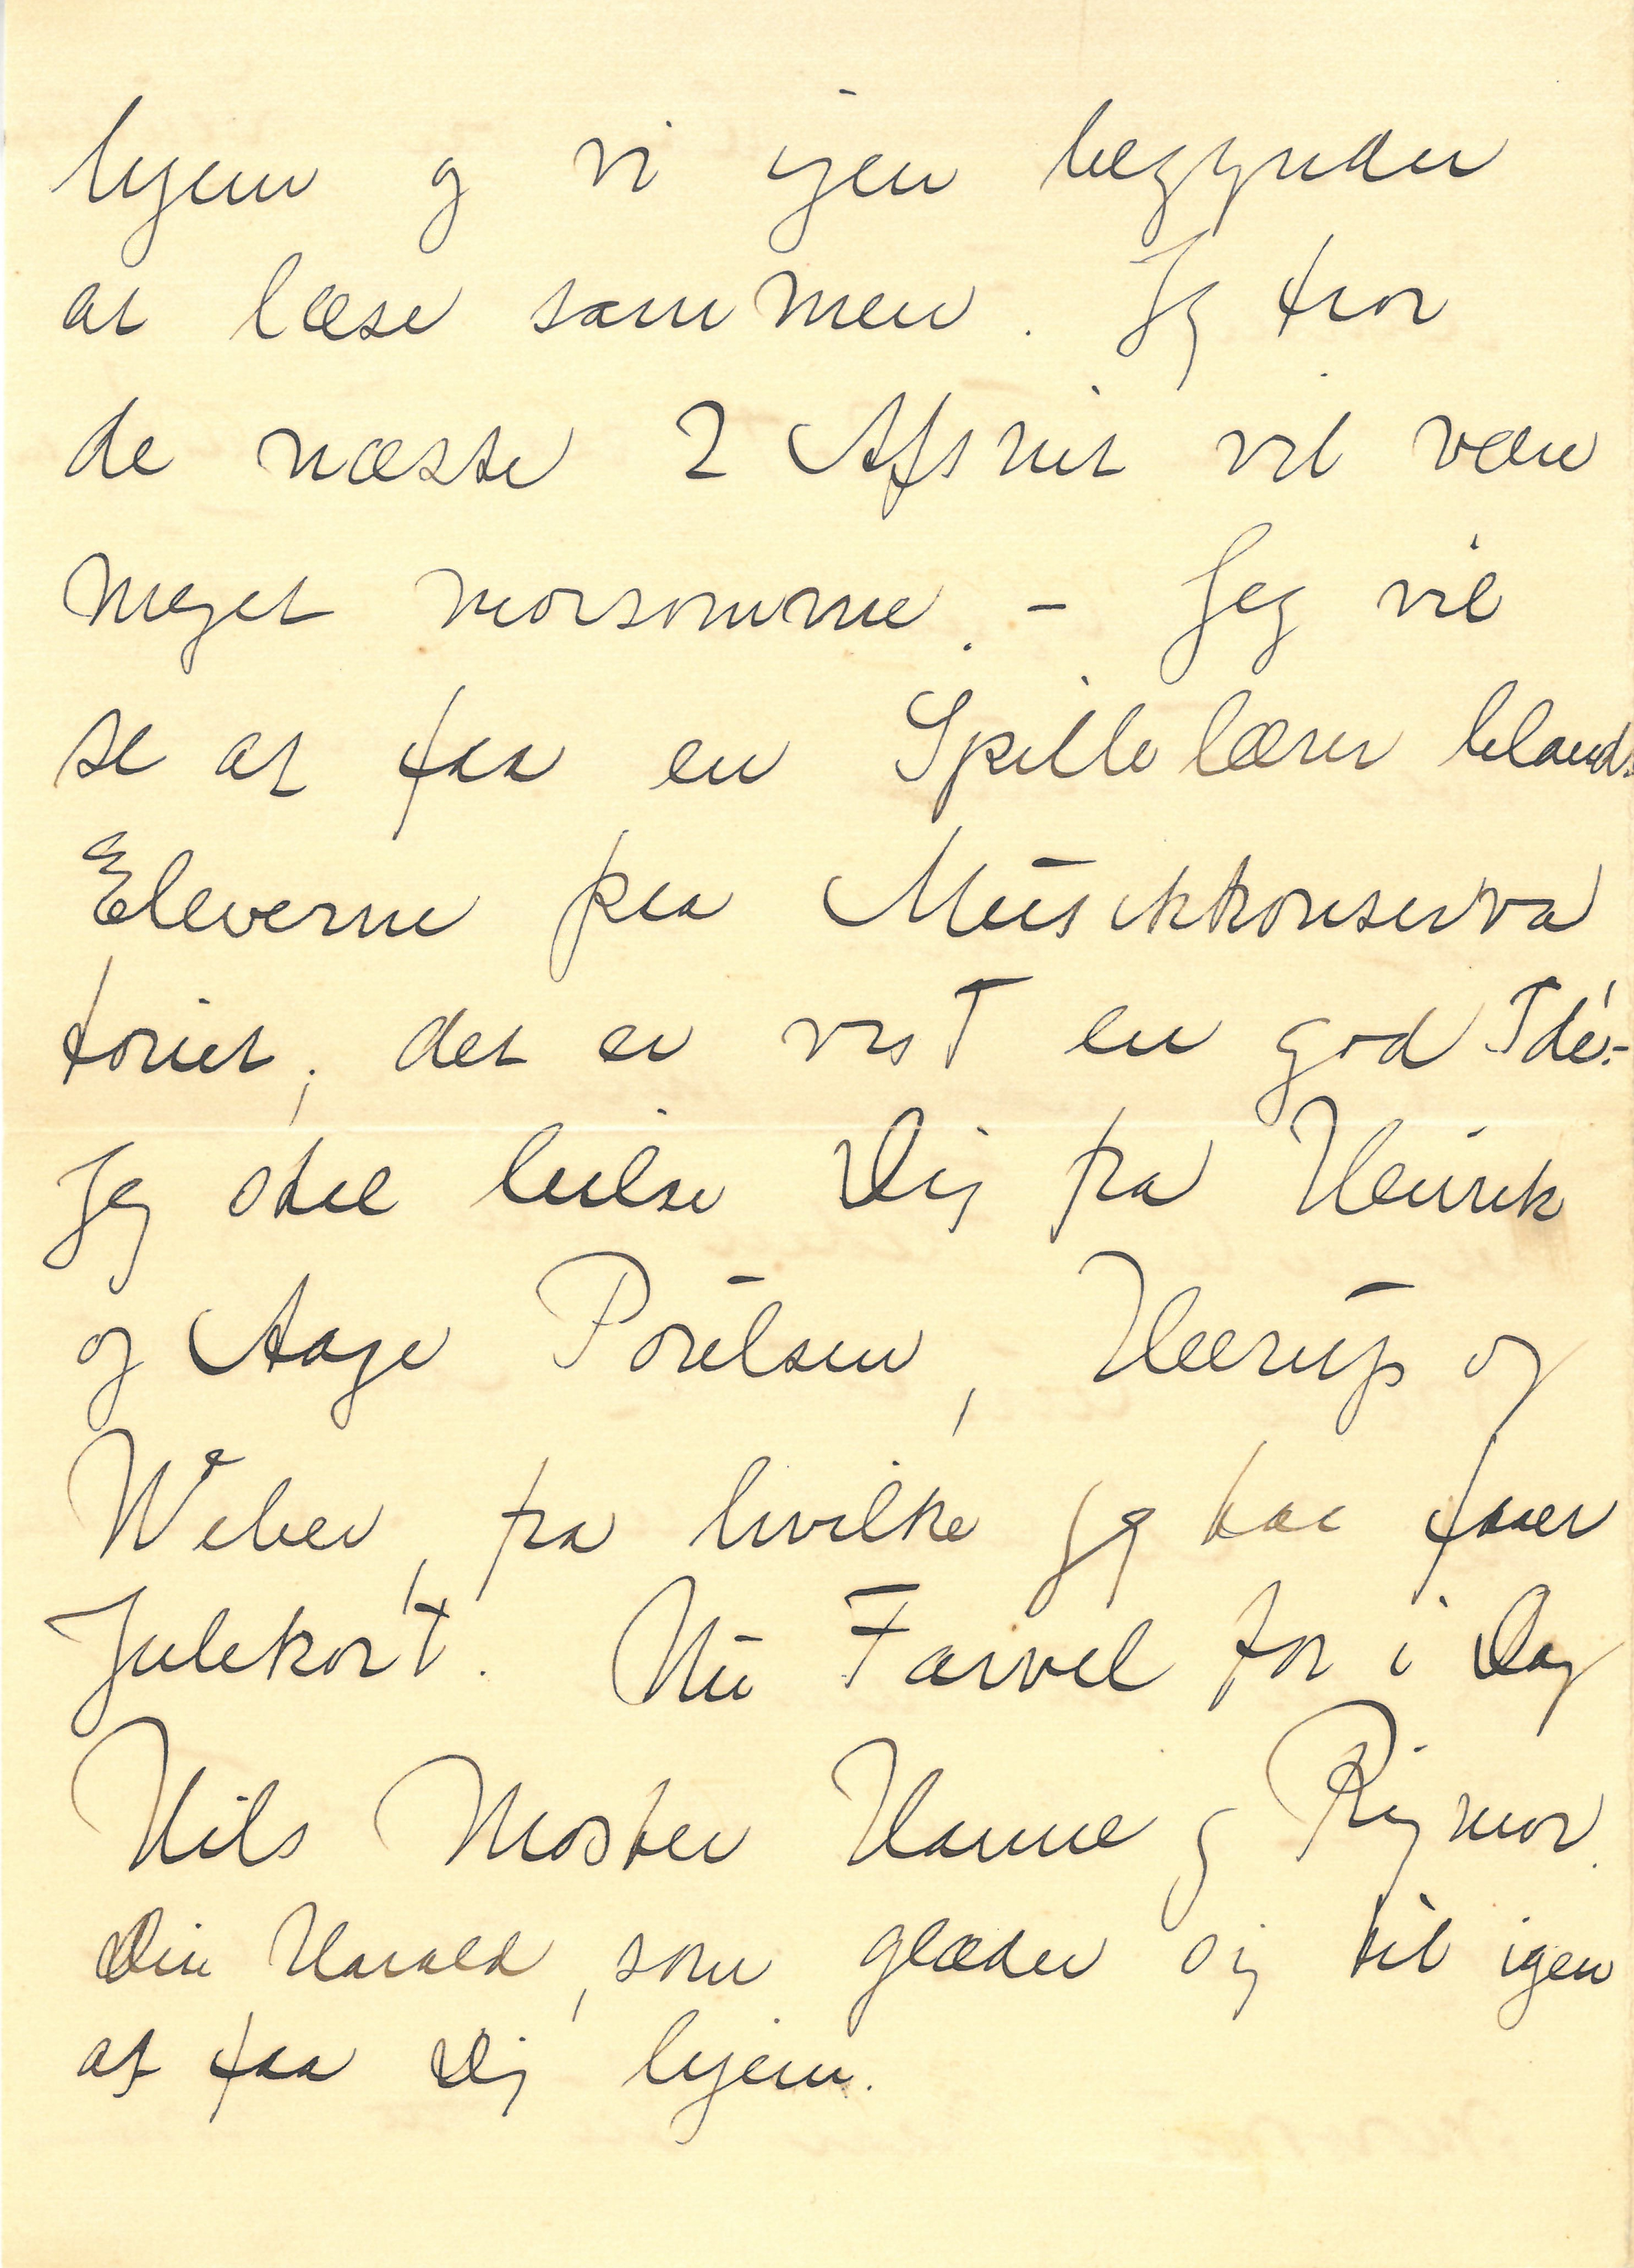 hjem og vi igen begynder
at læse sammen. Jeg tror
de næste 2 Afsnit vil være
meget morsomme. - Jeg vil
se at faa en Spillelærer blandt
Eleverne paa Musikkonserva
toriet, det er vist en god Idé.-
Jeg skal hilse Dig fra Henrik
og Aage Poulsen, Heerup og
Weber, fra hvilke jeg har faaet
Julekort. Nu Farvel for i Dag
Hils Moster Hanne og Rigmor.
Din Harald, som glæder sig til igen
at faa Dig hjem.